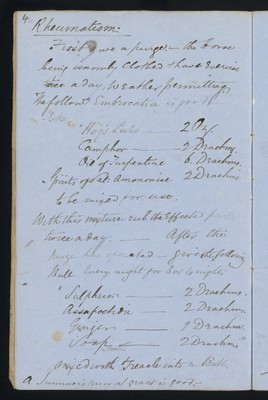 4
Rheumatism:
First give a purge — the horse
being warmly Clothed & have Exercise
a day, Weather permitting
The follow Embrocatin is good
Hog's Lard — 2 Oz.
Camphor — 2 Drachms
Oil of Turpentine 6. Drachms.
Spirits of Sal. Amoniac 2 Drachms
to be mixed for use.
With this mixture rub the Effected
twice a day. — After the
purge has operated — give the following
Ball Every night for 3 or 4 nights
Sulphur — 2 Drachms.
Assafoetida — 2 Drachms.
Ginger — 1 Drachm.
Soap — 2 Drachms
mixed with Treacle into a Ball,
a Summers run at grass is good.—